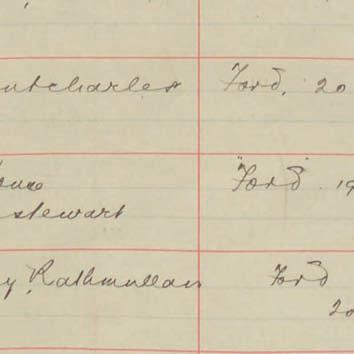 ntcharles Ford. 20
"Ford" 19
stewart
y Rathmullan Ford
20